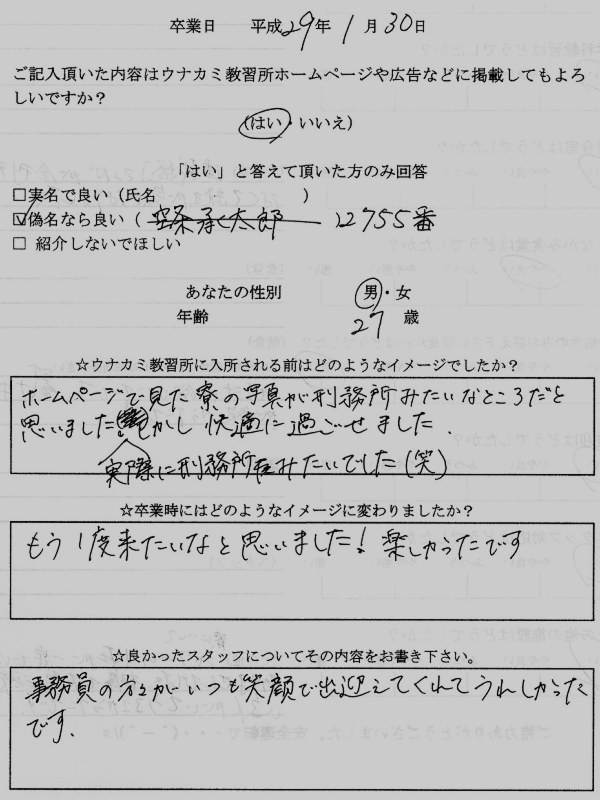 卒業日 平成29年1月30日
ご記入頂いた内容はウナカミ教習所ホームページや広告などに掲載してもよろ
しいですか?
(はい・いいえ)
「はい」と答えて頂いた方のみ回答
□実名で良い(氏名 )
☑偽名なら良い( 空条承太郎 12755番
□ 紹介しないでほしい
あなたの性別 男・女
年齢 27 歳
☆ウナカミ教習所に入所される前はどのようなイメージでしたか?
ホームページで見た寮の写真が刑務所みたいなところだと
思いました しかし快適に過ごせました.
実際に刑務所みたいでした(笑)
☆卒業時にはどのようなイメージに変わりましたか?
もう1度来たいなと思いました!楽しかったです
☆良かったスタッフについてその内容をお書き下さい。
事務員の方々がいつも笑顔で出迎えてくれてうれしかった
です.